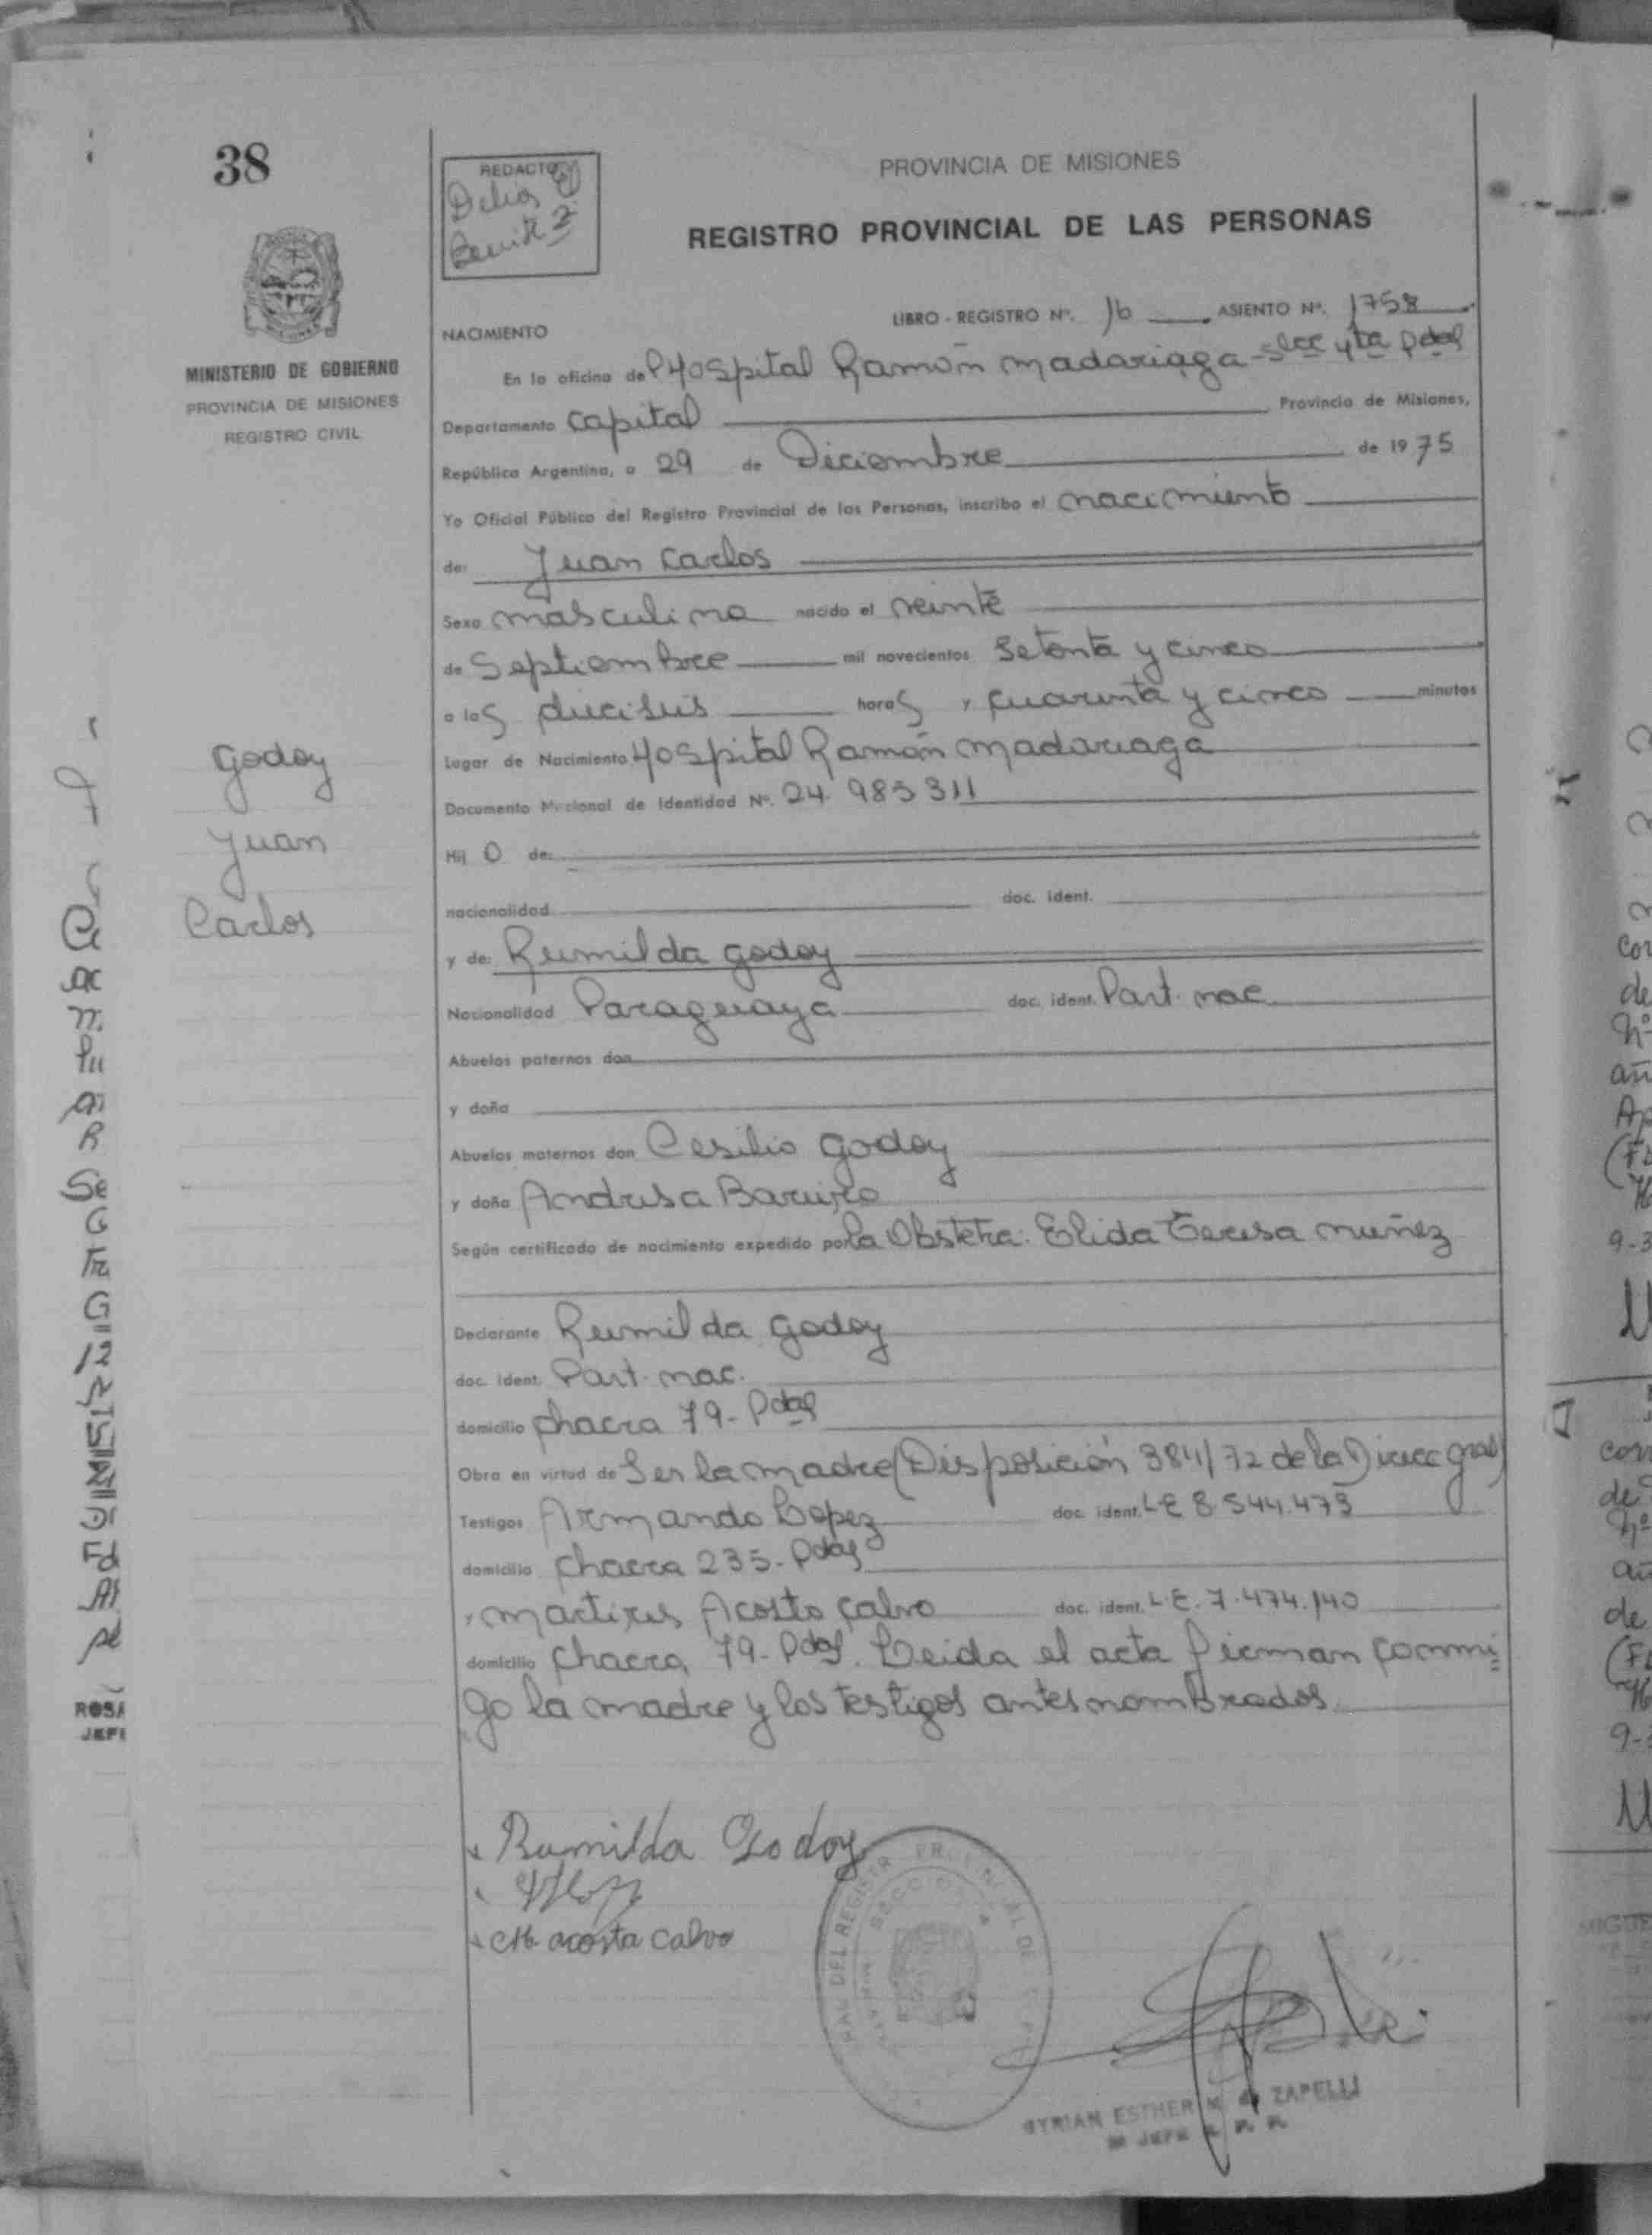 38
REDACTO
Delia
Benitez
PROVINCIA DE MISIONES
REGISTRO PROVINCIAL DE LAS PERSONAS
MINISTERIO DE GOBIERNO
PROVINCIA DE MISIONES
REGISTRO CIVIL
LIBRO - REGISTRO Nº. 16 ASIENTO Nº. 1758
NACIMIENTO
En la oficina del Hospital Ramón Madariaga - Secc 4ta Pdas
Departamento Capital Provincia de Misiones,
República Argentina, a 29 de Diciembre de 1975
Yo Oficial Público del Registro Provincial de las Personas, inscribo el nacimiento
de: Juan Carlos
Sexo masculino nacido el veinte
de Septiembre mil novecientos Setenta y cinco
a las dieciseis horas y cuarenta y cinco minutos
Lugar de Nacimiento Hospital Ramón Madariaga
Documento Nacional de Identidad Nº. 24.983311
Hij o de:
nacionalidad doc. ident.
y de: Rumilda Godoy
Nacionalidad Paraguaya doc. ident. Part. nac
Abuelos paternos don
y doña
Abuelos maternos don Cesilio Godoy
y doña Andresa Bareiro
Según certificado de nacimiento expedido por la Obstetra: Elida Teresa Nuñez
Declarante Rumilda Godoy
doc. ident. Part. nac.
domicilio chacra 79- Pdas
Obra en virtud de Ser la madre (Disposición 384/72 de la Direcc Gral)
Testigos Armando Lopez doc. ident. L E 8.544.473
domicilio Chacra 235- Pdas
y Martires Acosta Calvo doc. ident. L.E. 7.474.140
domicilio Chacra 79- Pdas. Leida el acta firman conmi
go la madre y los testigos antes nombrados.
Godoy
Juan
Carlos
Rumilda Godoy
acosta calvo
MYRIAN ESTHER M. de ZAPELLI
ROSA
JEFE